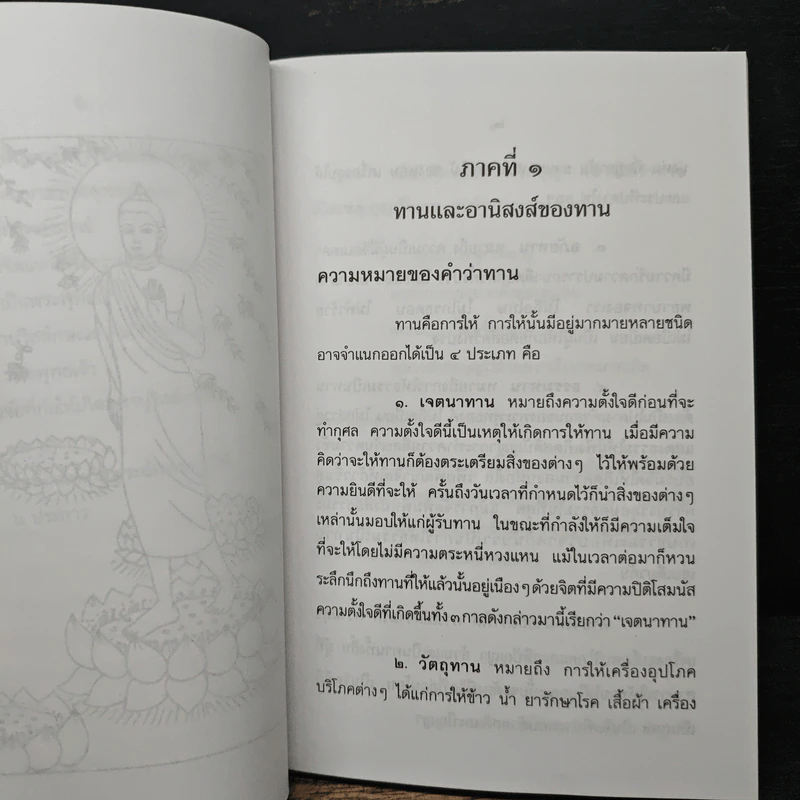 ภาคที่ ๑
ทานและอานิสงส์ของทาน
ความหมายของคำว่าทาน
ทานคือการให้ การให้นั้นมีอยู่มากมายหลายชนิด
อาจจำแนกออกได้เป็น ๔ ประเภท คือ
๑. เจตนาทาน หมายถึงความตั้งใจดีก่อนที่จะ
ทำกุศล ความตั้งใจดีนี้เป็นเหตุให้เกิดการให้ทาน เมื่อมีความ
คิดว่าจะให้ทานก็ต้องตระเตรียมสิ่งของต่างๆ ไว้ให้พร้อมด้วย
ความยินดีที่จะให้ ครั้นถึงวันเวลาที่กำหนดไว้ก็นำสิ่งของต่างๆ
เหล่านั้นมอบให้แก่ผู้รับทาน ในขณะที่กำลังให้ก็มีความเต็มใจ
ที่จะให้โดยไม่มีความตระหนี่หวงแหน แม้ในเวลาต่อมาก็หวน
ระลึกนึกถึงทานที่ให้แล้วนั้นอยู่เนืองๆด้วยจิตที่มีความปิติโสมนัส
ความตั้งใจดีที่เกิดขึ้นทั้ง๓กาลดังกล่าวมานี้เรียกว่า “เจตนาทาน”
๒. วัตถุทาน หมายถึง การให้เครื่องอุปโภค
บริโภคต่างๆ ได้แก่การให้ข้าว น้ำ ยารักษาโรค เสื้อผ้า เครื่อง